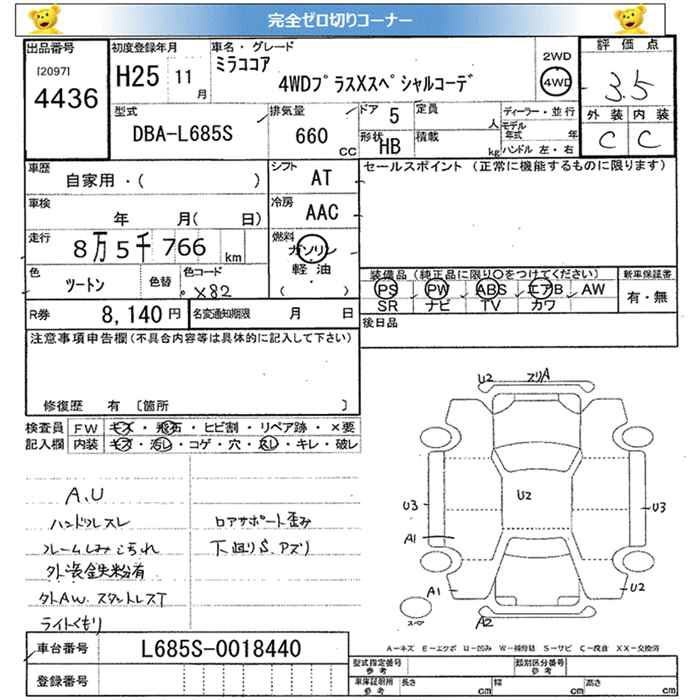 完全ゼロ切りコーナー
出品番号
[2097]
4436
初度登録年月
H25 11月
車名・グレード
ミラココア
4WDプラスXスペシャルコーデ
2WD
4WD
評価点
3.5
外装 内装
C C
型式
DBA-L685S
排気量
660 CC
ドア 5
形状 HB
定員 人
積載 kg
ディーラー・並行
モデル年式 年
ハンドル 左・右
車歴
自家用・( )
シフト AT
セールスポイント (正常に機能するものに限ります)
車検
年 月( 日)
冷房 AAC
走行
8万5千766 km
燃料
ガソリン
軽油
( )
色
ツートン
色替
色コード
X82
装備品 (純正品に限り○をつけてください)
PS PW ABS エアB AW
SR ナビ TV カワ
新車保証書
有・無
R券 8,140円
名変通知期限 月 日
後日品
注意事項申告欄(不具合内容等は具体的に記入して下さい)
修復歴 有 〔箇所 〕
検査員 FW キズ・飛石・ヒビ割・リペア跡・×要
記入欄 内装 キズ・汚レ・コゲ・穴・スレ・キレ・破レ
A,U
ハンドルスレ
フレームしみこぢれ
外装鉄粉有
外AW. スタットレスT
ライトくもり
ロアサポート歪み
下廻りS.アブリ
U2 スリA
U2
U3
U3
A1
A1
U2
A2
スペア
A-キズ E-エクボ U-凹み W-補修跡 S-サビ C-腐食 XX-交換済
車台番号 L685S-0018440
登録番号
型式指定番号 参考
類別区分番号 参考
車庫証明用 参考
長さ cm
幅 cm
高さ cm